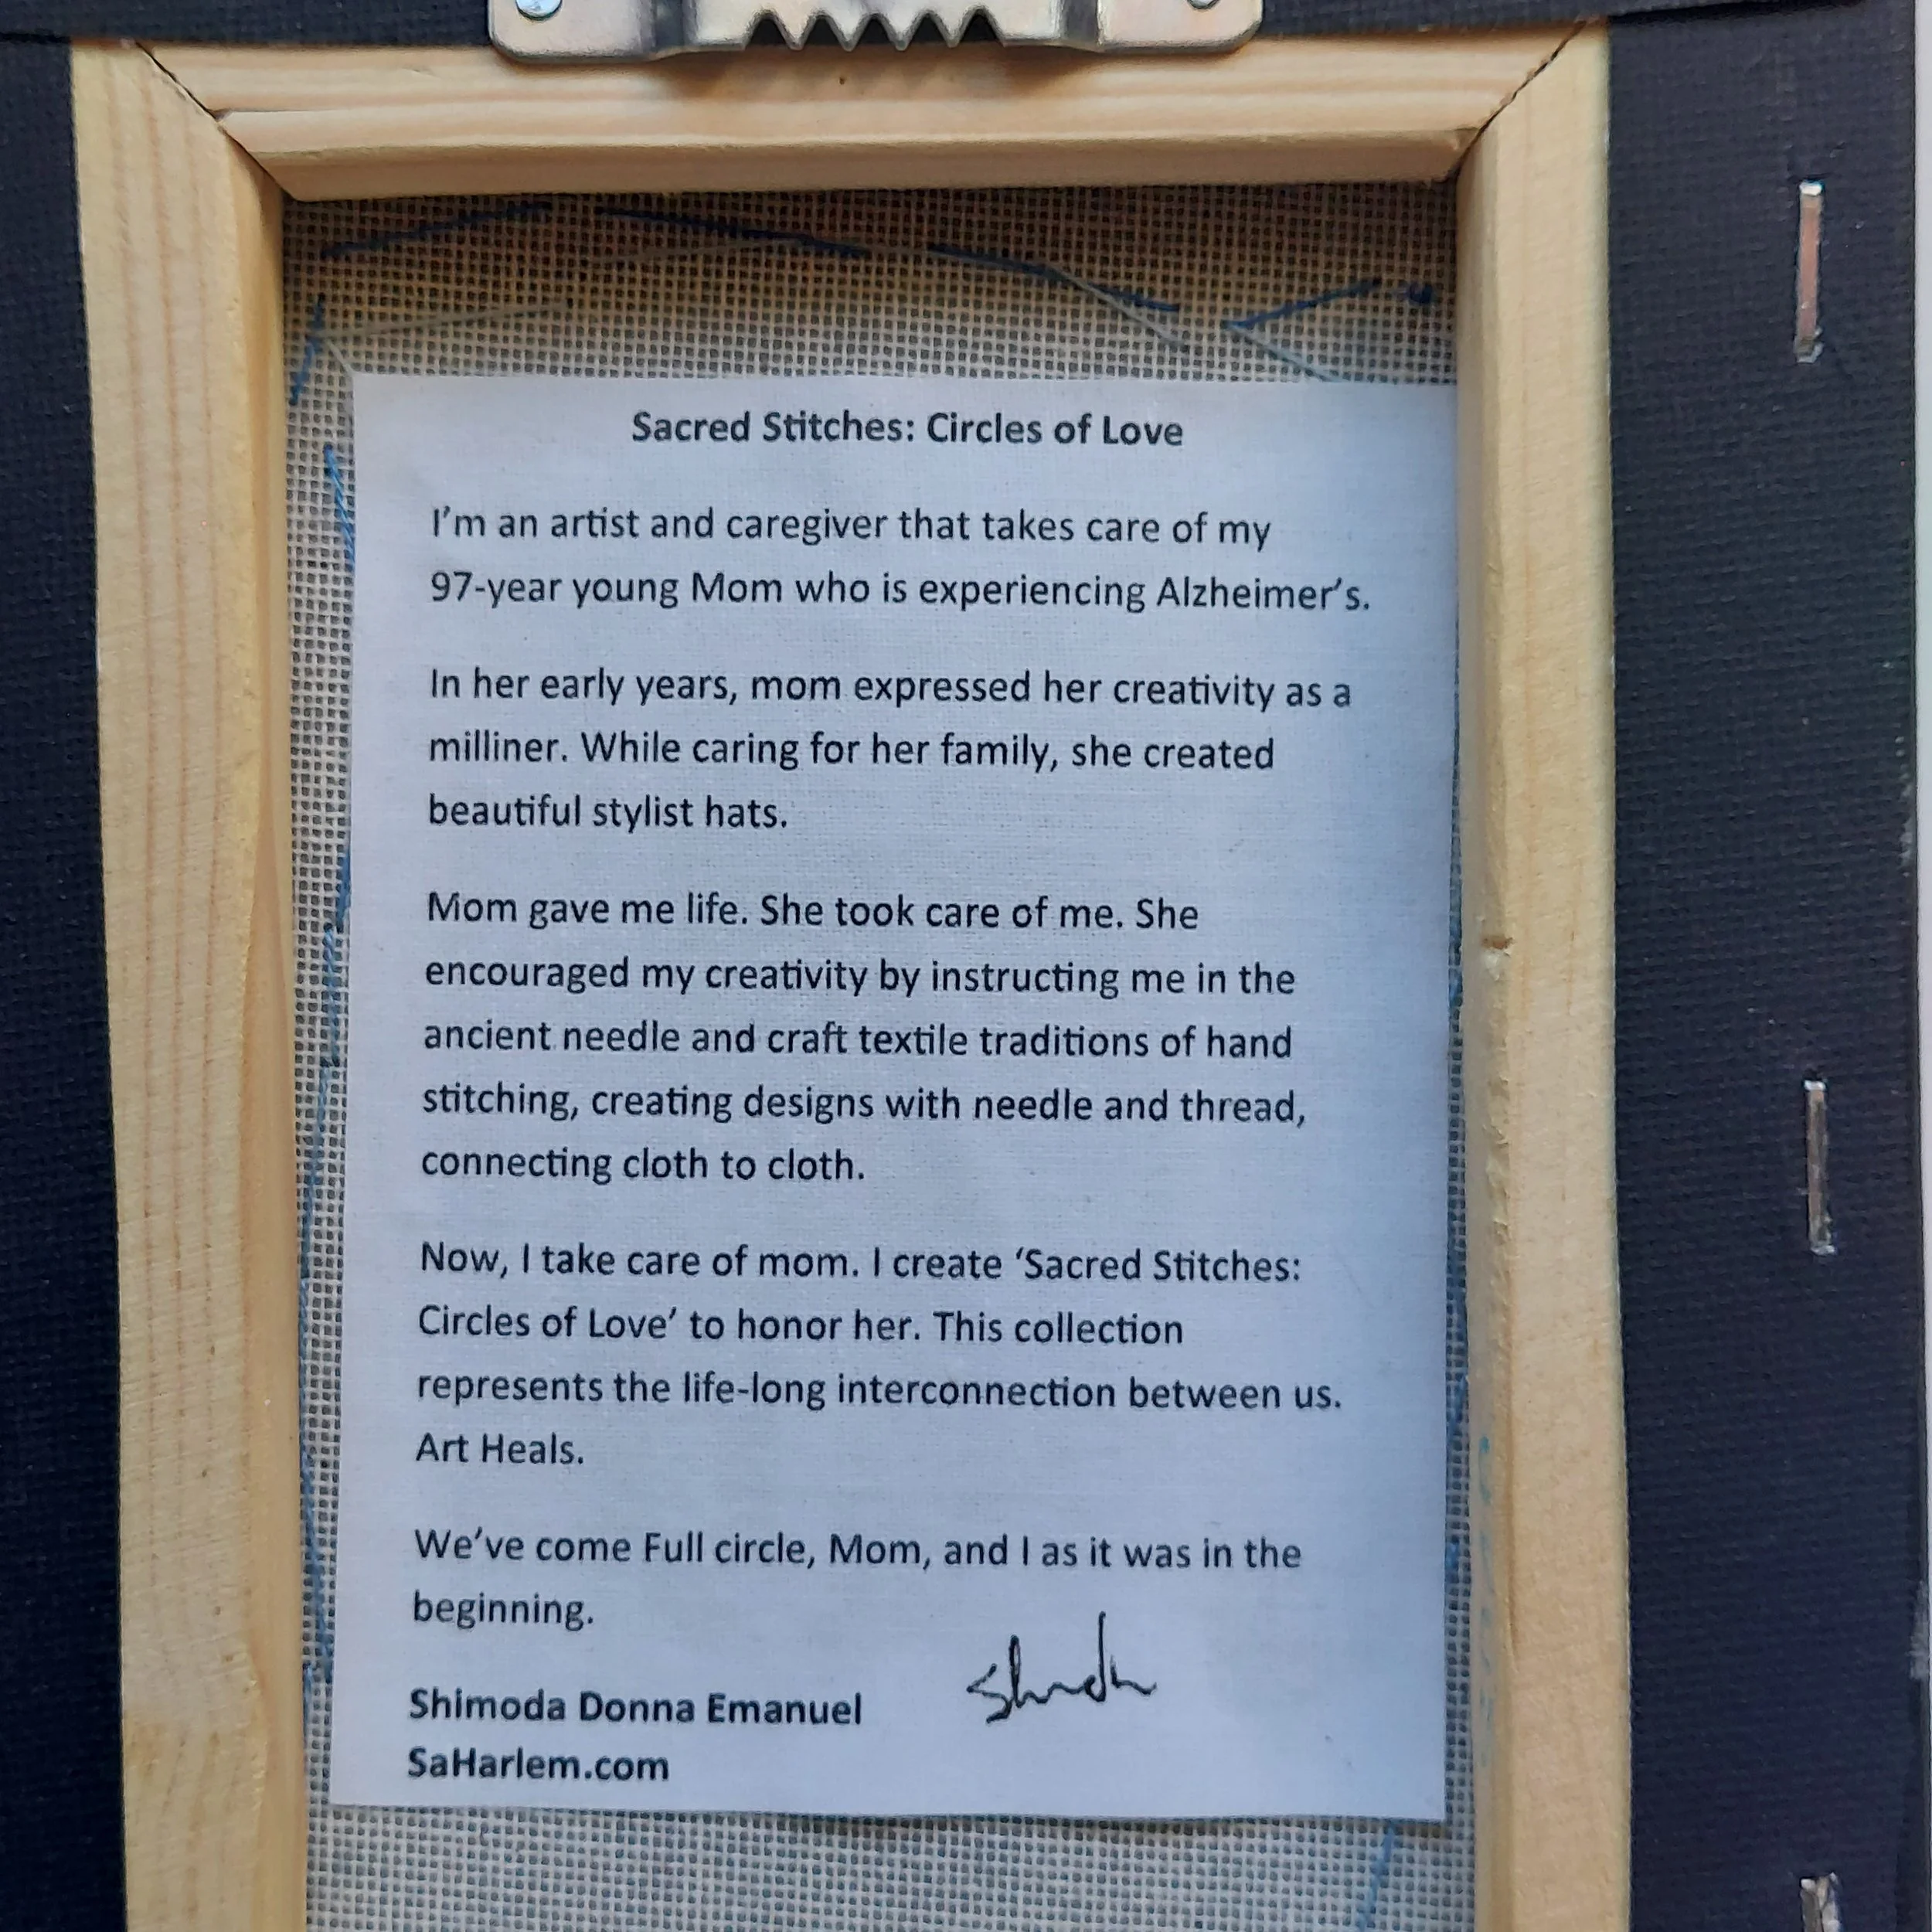 Sacred Stitches: Circles of Love
I'm an artist and caregiver that takes care of my
97-year young Mom who is experiencing Alzheimer's.
In her early years, mom expressed her creativity as a
milliner. While caring for her family, she created
beautiful stylist hats.
Mom gave me life. She took care of me. She
encouraged my creativity by instructing me in the
ancient needle and craft textile traditions of hand
stitching, creating designs with needle and thread,
connecting cloth to cloth.
Now, I take care of mom. I create ‘Sacred Stitches:
Circles of Love’ to honor her. This collection
represents the life-long interconnection between us.
Art Heals.
We've come Full circle, Mom, and I as it was in the
beginning.
Shimoda Donna Emanuel
SaHarlem.com